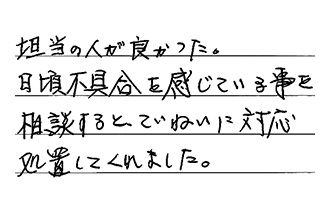 担当の人が良かった。
日頃不具合を感じている事を
相談すると、ていねいに対応
処置してくれました。